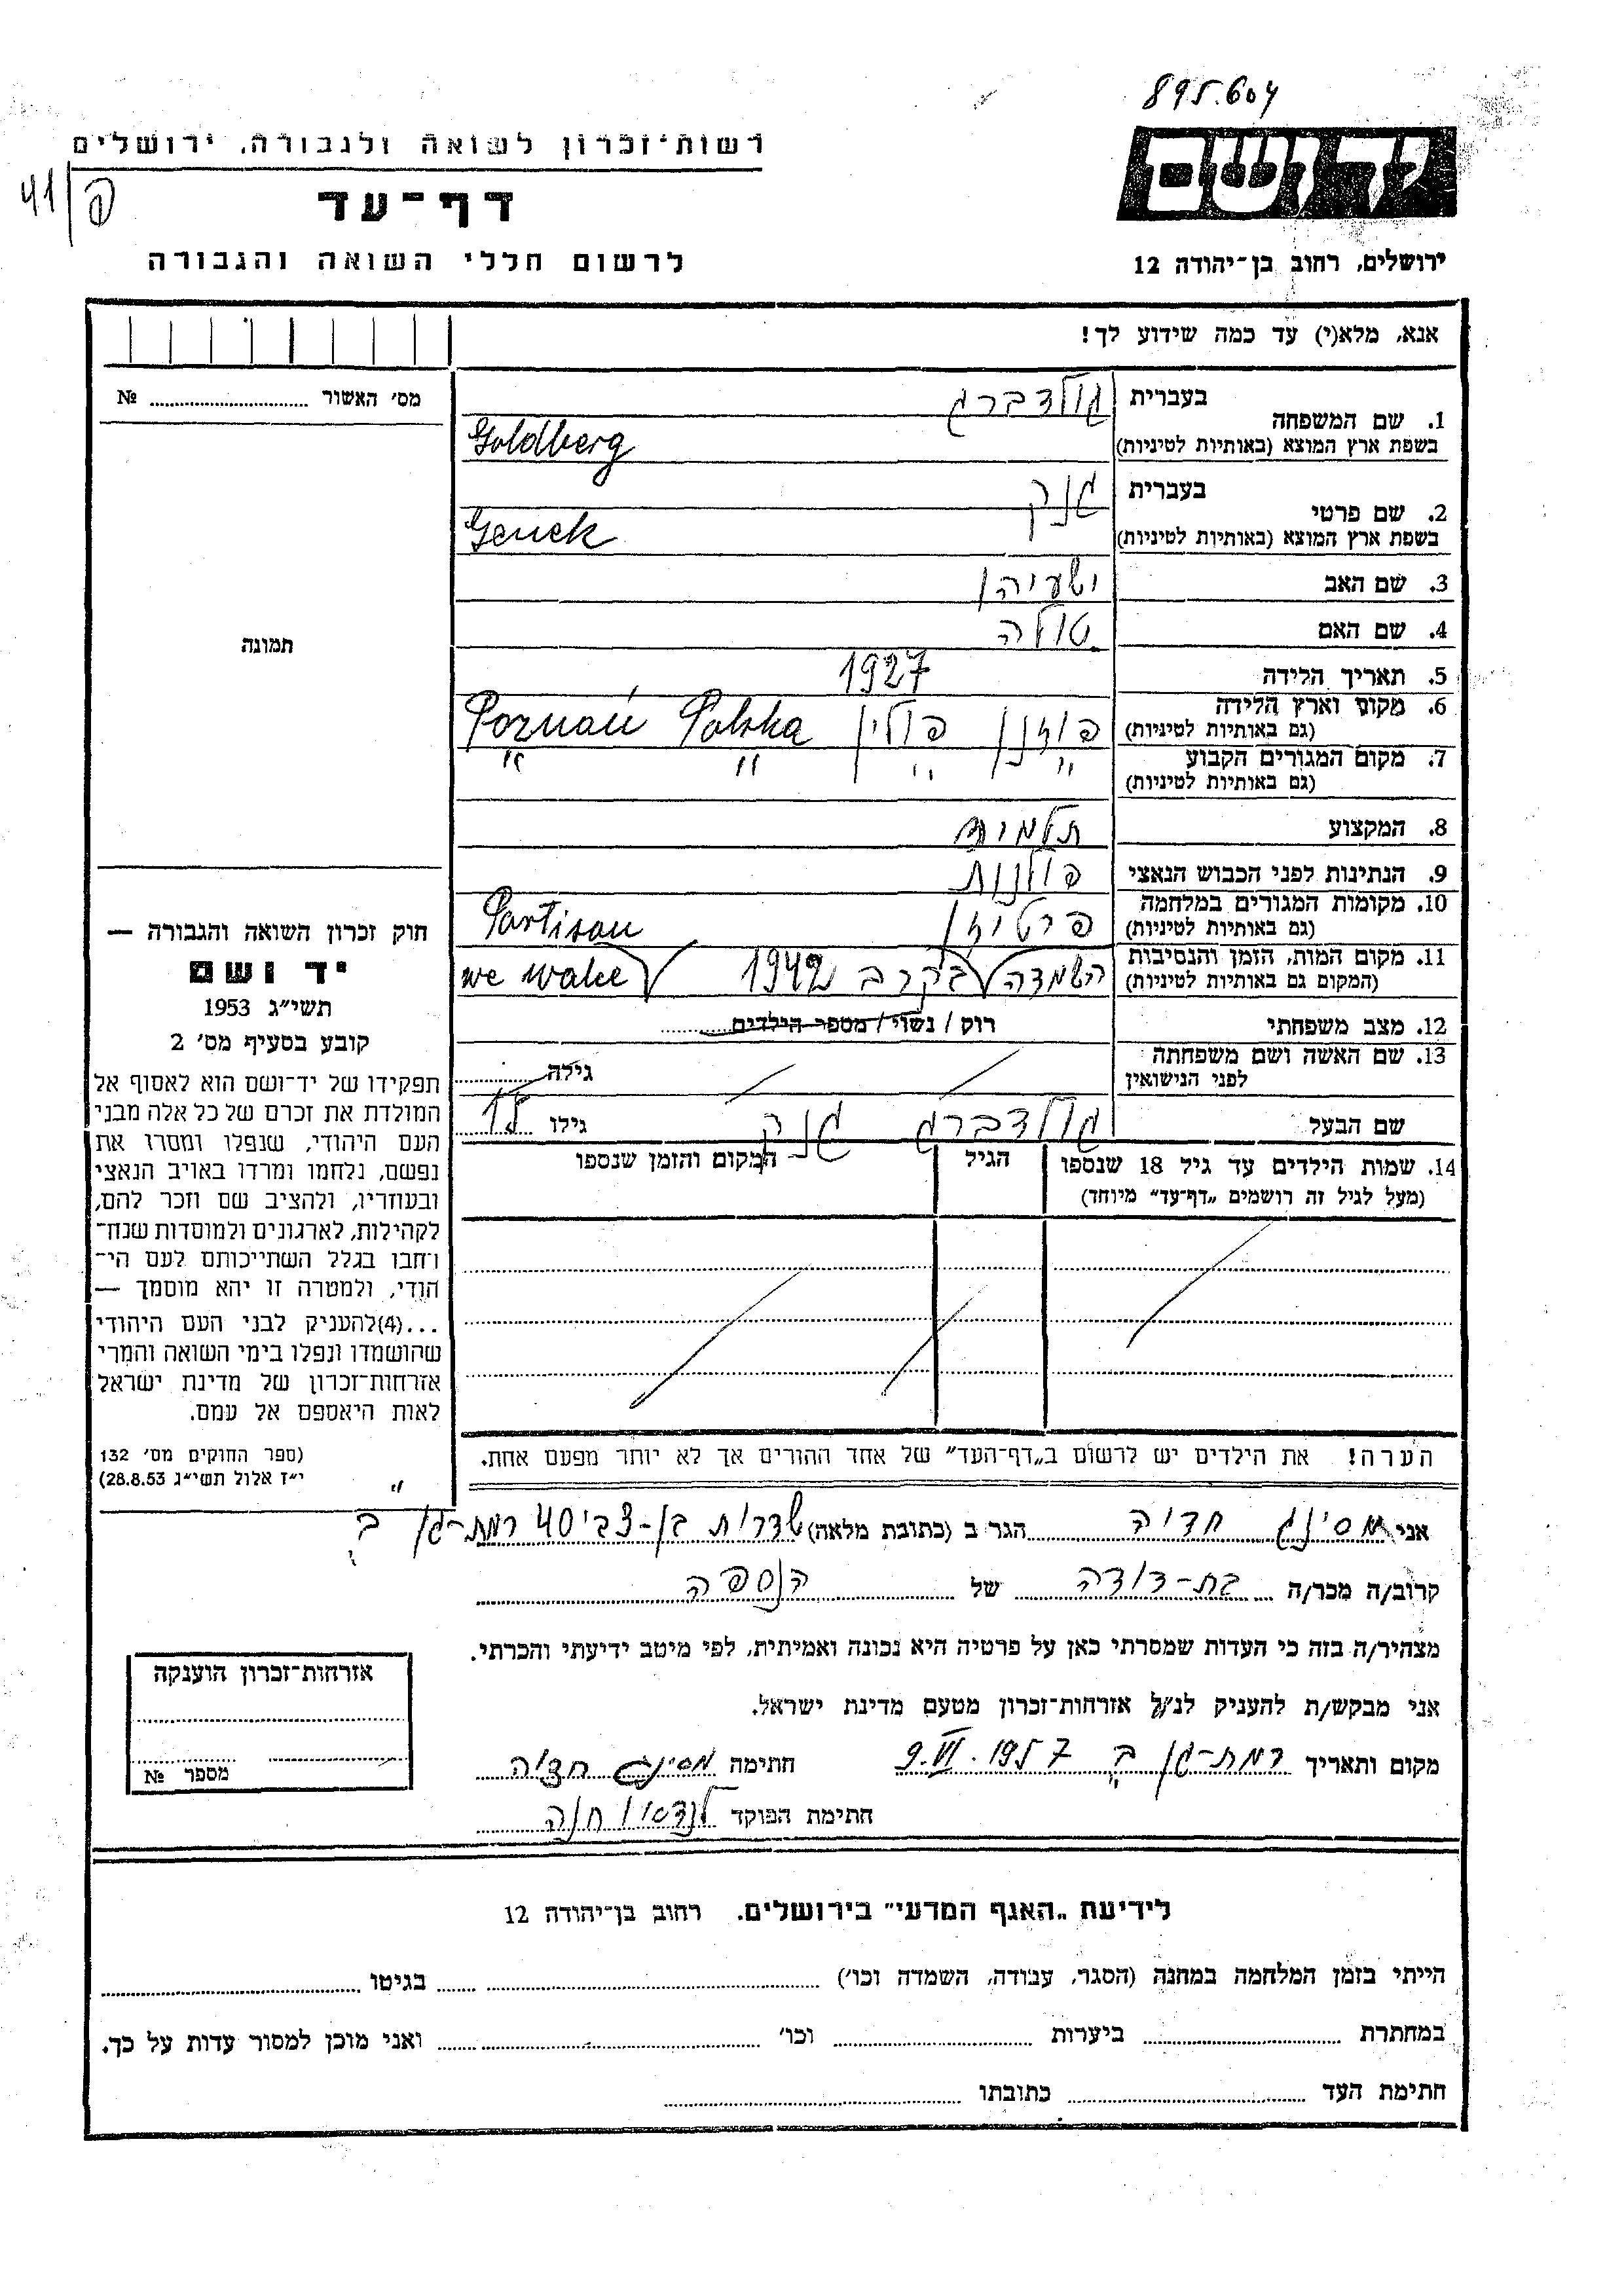 895.604
רשות־זכרון לשואה ולגבורה, ירושלים
41/פ
ידושם
דף־עד
לרשום חללי השואה והגבורה
ירושלים, רחוב בן־יהודה 12
אנא, מלא(י) עד כמה שידוע לך!
מס׳ האשור № ........
1. שם המשפחה בעברית גולדברג
בשפת ארץ המוצא (באותיות לטיניות) Goldberg
2. שם פרטי בעברית גנק
בשפת ארץ המוצא (באותיות לטיניות) Genek
3. שם האב ישעיהו
4. שם האם טולה
תמונה
5. תאריך הלידה 1927
6. מקום וארץ הלידה פוזנן פולין Poznań Polska
(גם באותיות לטיניות)
7. מקום המגורים הקבוע " " " "
(גם באותיות לטיניות)
8. המקצוע תלמיד
9. הנתינות לפני הכבוש הנאצי פולנית
10. מקומות המגורים במלחמה פרטיזן Partisan
(גם באותיות לטיניות)
11. מקום המות, הזמן והנסיבות השמדה בקרב 1942 we walce
(המקום גם באותיות לטיניות)
12. מצב משפחתי רוק / נשוי / מספר הילדים........
13. שם האשה ושם משפחתה גילה ........
לפני הנישואין
שם הבעל גולדברג גנק גילו 15
14. שמות הילדים עד גיל 18 שנספו הגיל המקום והזמן שנספו
(מעל לגיל זה רושמים „דף־עד״ מיוחד)
חוק זכרון השואה והגבורה —
יד ושם
תשי״ג 1953
קובע בסעיף מס׳ 2
תפקידו של יד־ושם הוא לאסוף אל
המולדת את זכרם של כל אלה מבני
העם היהודי, שנפלו ומסרו את
נפשם, נלחמו ומרדו באויב הנאצי
ובעוזריו, ולהציב שם וזכר להם,
לקהילות, לארגונים ולמוסדות שנח־
רחבו בגלל השתייכותם לעם הי־
הודי, ולמטרה זו יהא מוסמך —
...(4)להעניק לבני העם היהודי
שהושמדו ונפלו בימי השואה והמרי
אזרחות־זכרון של מדינת ישראל
לאות היאספם אל עמם.
(ספר החוקים מס׳ 132
י״ז אלול תשי״ג 28.8.53)
הערה! את הילדים יש לרשום ב„דף־העד״ של אחד ההורים אך לא יותר מפעם אחת.
אני מסינג חדיה הגר ב (כתובת מלאה) שדרות בן-צבי 40 רמת-גן ב
קרוב/ה מכר/ה בת-דודה של הנספה
מצהיר/ה בזה כי העדות שמסרתי כאן על פרטיה היא נכונה ואמיתית, לפי מיטב ידיעתי והכרתי.
אני מבקש/ת להעניק לנ״ל אזרחות־זכרון מטעם מדינת ישראל.
מקום ותאריך רמת-גן ב 9.VI.1957 חתימה מסינג חדיה
חתימת הפוקד לנדאו חנה
אזרחות־זכרון הוענקה
מספר №
לידיעת „האגף המדעי״ בירושלים. רחוב בן־יהודה 12
הייתי בזמן המלחמה במחנה (הסגר, עבודה, השמדה וכו׳) ........ בגיטו ........
במחתרת ........ ביערות ........ וכו׳ ........ ואני מוכן למסור עדות על כך.
חתימת העד ........ כתובתו ........